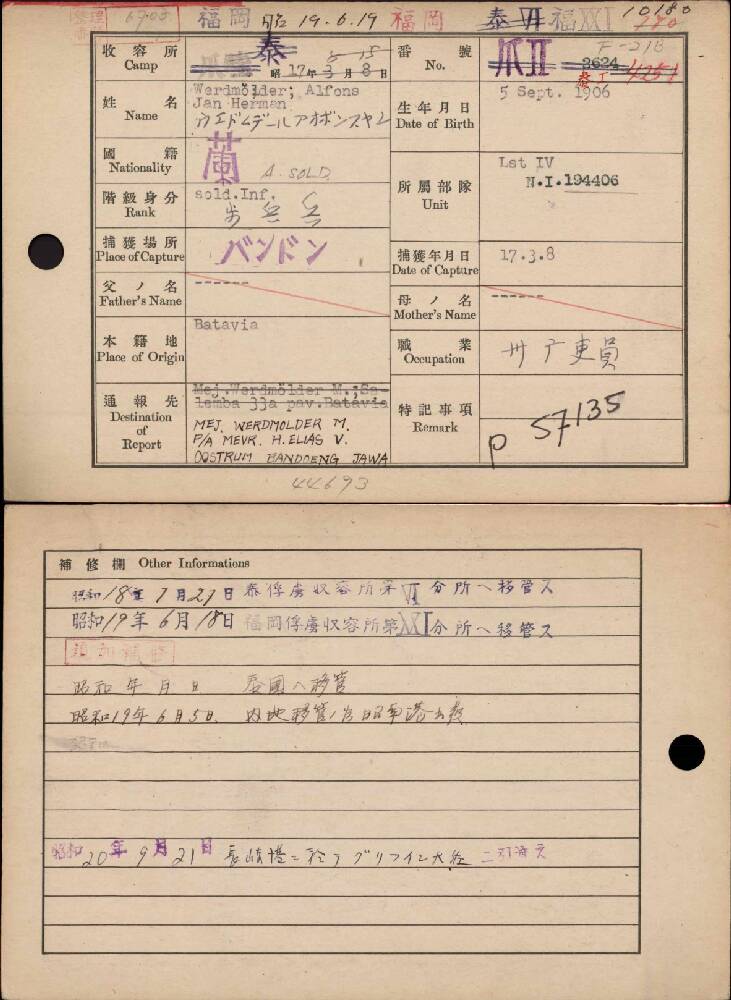 福岡 昭19.6.19 福岡 泰VI 福XXI 10180
収容所 Camp 泰 昭17年3月8日
番號 No. 爪II 3624 F-218 4251
姓名 Name Werdmölder; Alfons
Jan Herman
生年月日 Date of Birth 5 Sept. 1906
國籍 Nationality 蘭 A. SOLD.
階級身分 Rank sold.Inf.
歩兵
所属部隊 Unit Lst IV
N.I.194406
捕獲場所 Place of Capture バンドン
捕獲年月日 Date of Capture 17.3.8
父ノ名 Father's Name -------
母ノ名 Mother's Name -------
本籍地 Place of Origin Batavia
職業 Occupation 吏員
通報先 Destination of Report Mej.Werdmölder M.;Sa-
lemba 33a pav.Batavia
MEJ. WERDMOLDER M.
P/A MEVR. H. ELIAS V.
OOSTRUM BANDOENG JAWA
特記事項 Remark P 57135
44693
補修欄 Other Informations
昭和18年7月27日 泰俘虜収容所第VI分所ヘ移管ス
昭和19年6月18日 福岡俘虜収容所第XXI分所ヘ移管ス
昭和 年 月 日 泰國ヘ移管
昭和19年6月5日 内地移管
昭和20年9月21日 長崎港ニ於テグリフイン大佐ニ引渡ス